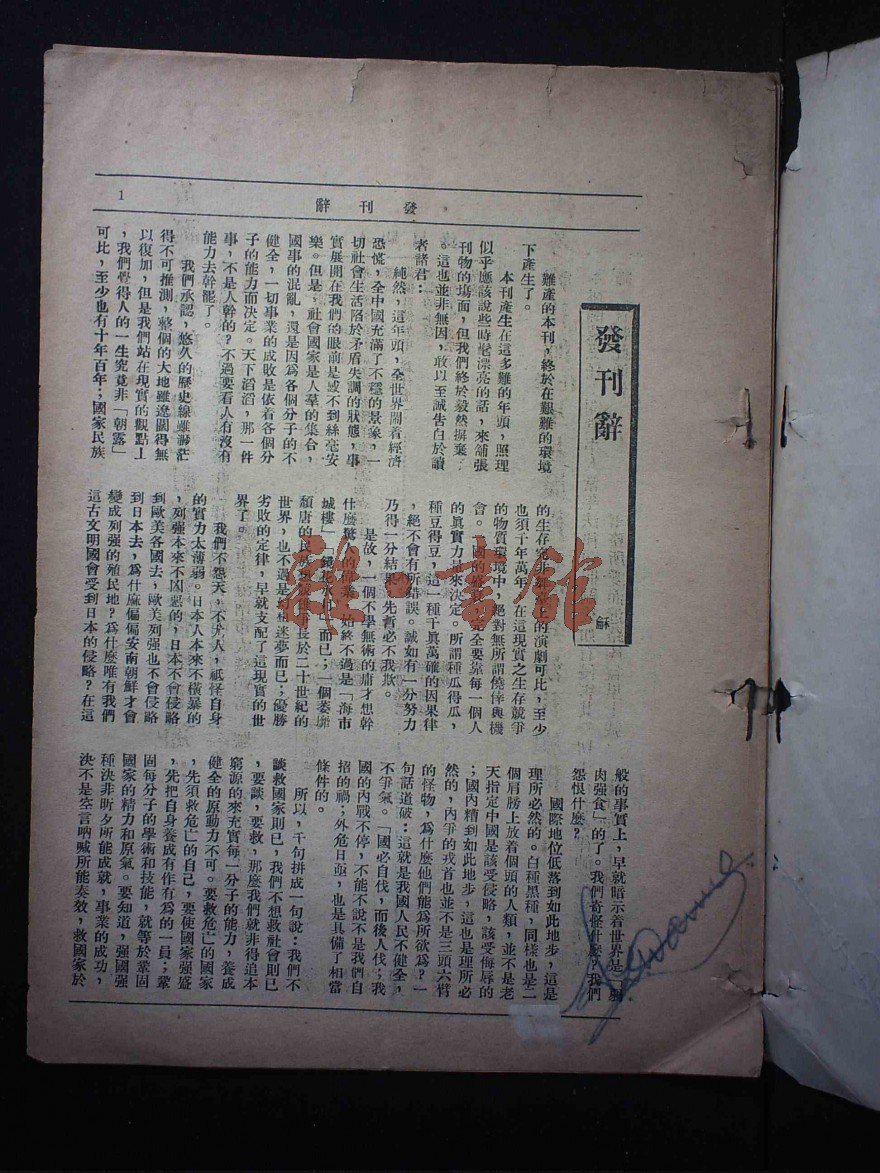 1
發刊辭
發刊辭
穌
難產的本刊，終於在艱難的環境
下產生了。
本刊產生在這多難的年頭，照理
似乎應該說些時髦漂亮的話，來舖張
刊物的塲面，但我們終於毅然摒棄
。這也並非無因，敢以至誠告白於讀
者諸君：
純然，這年頭，全世界鬧着經濟
恐慌，全中國充滿了不穩的景象，一
切社會生活陷於矛盾失調的狀態，事
實展開在我們的眼前是或不到絲毫安
樂。但是，社會國家是人羣的集合，
國事的混亂，還是因為各個分子的不
健全，一切事業的成敗是依着各個分
子的能力而決定。天下滔滔，那一件
事，不是人幹的？不過要看人有沒有
能力去幹罷了。
我們承認，悠久的歷史線雖渺茫
得不可推測，整個的大地雖遼闊得無
以復加，但是我們站在現實的觀點上
，我們覺得人的一生究竟非「朝露」
可比，至少也有十年百年；國家民族
的生存究非
的演劇可比，至少
也須千年萬年。在這現實之生存競爭
的物質環境中，絕對無所謂僥倖與機
會。一國的
完全要靠每一個人
的眞實力量來決定。所謂種瓜得瓜，
種豆得豆，這一種千眞萬確的因果律
，絕不會有所錯誤。誠如有一分努力
乃得一分結果，先暫必不我欺。
是故，一個不學無術的庸才想幹
什麼驚
的偉業，始終不過是「海市
城樓」「鏡花水月」而已；一個萎靡
頹唐的民族
長於二十世紀的
世界，也不過是
迷夢而已；優勝
劣敗的定律，早就支配了這現實的世
界了。
我們不怨天，不尤人，祇怪自身
的實力太薄弱。日本人本來不橫暴的
，列强本來不凶惡的，日本不會侵略
到歐美各國去，歐美列强也不會侵略
到日本去，爲什麻偏偏安南朝鮮才會
變成列强的殖民地？爲什麼唯有我們
這古文明國會受到日本的侵略？在這
般的事實上，早就暗示着世界是「弱
肉强食」的了。我們奇怪什麼？我們
怨恨什麼？
國際地位低落到如此地步，這是
理所必然的。白種黑種，同樣也是二
個肩膀上放着個頭的人類，並不是老
天指定中國是該受侵略，該受侮辱的
；國內糟到如此地步，這也是理所必
然的，內爭的戎首也並不是三頭六臂
的怪物，爲什麼他們能爲所欲爲？一
句話道破：這就是我國人民不健全，
不爭氣。「國必自伐，而後人伐；我
國的內戰不停，不能不說不是我們自
招的禍；外危日亟，也是具備了相當
條件的。
所以，千句拼成一句說：我們不
談救國家則已，我們不想救社會則已
，要談，要救，那麼我們就非得追本
窮源的來充實每一分子的能力，養成
健全的原動力不可。要救危亡的國家
，先須救危亡的自己，要使國家强盛
，先把自身養成有作有爲的一員；鞏
固每分子的學術和技能，就等於鞏固
國家的精力和原氣。要知道，强國强
種決非旰夕所能成就，事業的成功，
決不是空言吶喊所能奏效，救國家於
雜·書館